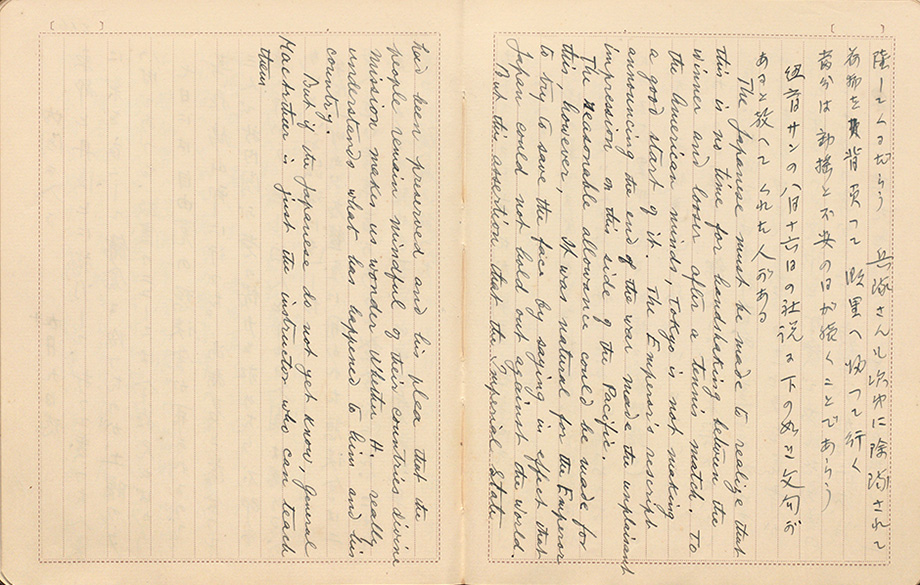 陸してくるだらう 兵隊さんも次々に除隊されて
荷物を背負って郷里へ帰って行く
當分は動揺と不安の日が続くことであらう
紐育サンの八月十六日の社説に下の如き文句が
あると教へてくれた人がある
The Japanese must be made to realize that
this is no time for handshaking between the
winner and looser after a tennis match. To
the American minds, Tokyo is not making
a good start of it. The Emperor's rescript
announcing the end of the war made the unpleasant
impression on this side of the Pacific.
The reasonable allowance could be made for
this, however, It was natural for the Emperor
to try to save the face by saying in effect that
Japan could not hold out against the world.
But this assertion that the Imperial State
had been preserved and his plea that the
people remain mindful of their countries divine
mission makes us wonder whether H. really
understands what has happened to him and his
country.
But if the Japanese do not yet know, General
MacArthur is just the instructor who can teach
them